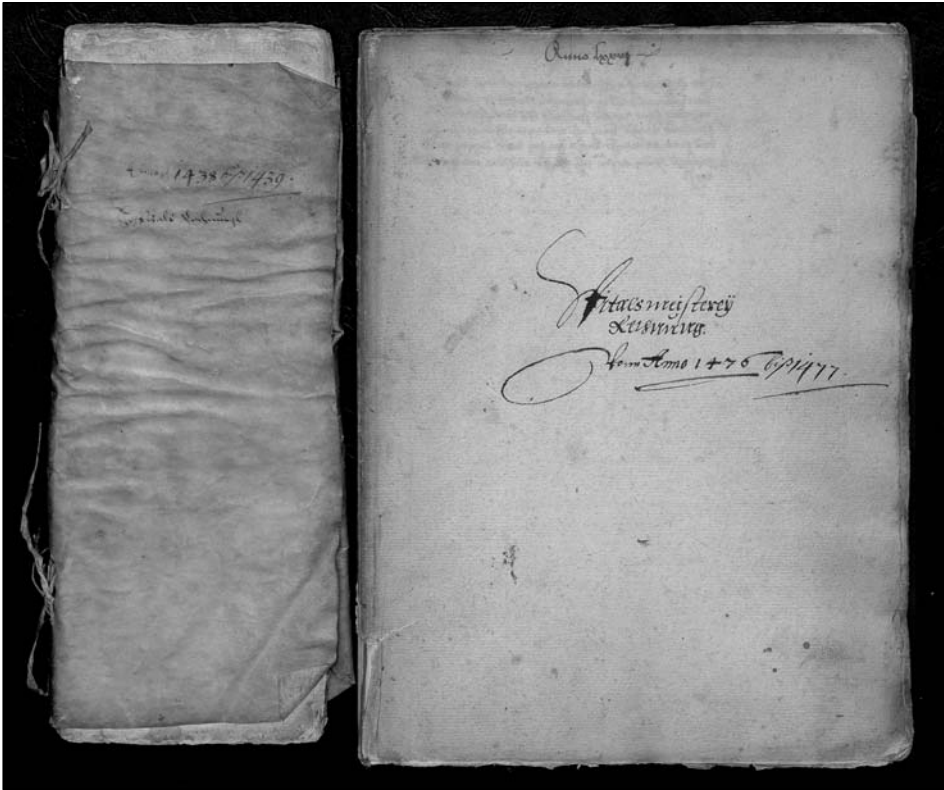 Anno 1438 biß 1439.
Spitals Rechnung
Anno lxxvj
Spitalsmeisterey
Rechnung.
vom Anno 1476 biß 1477.